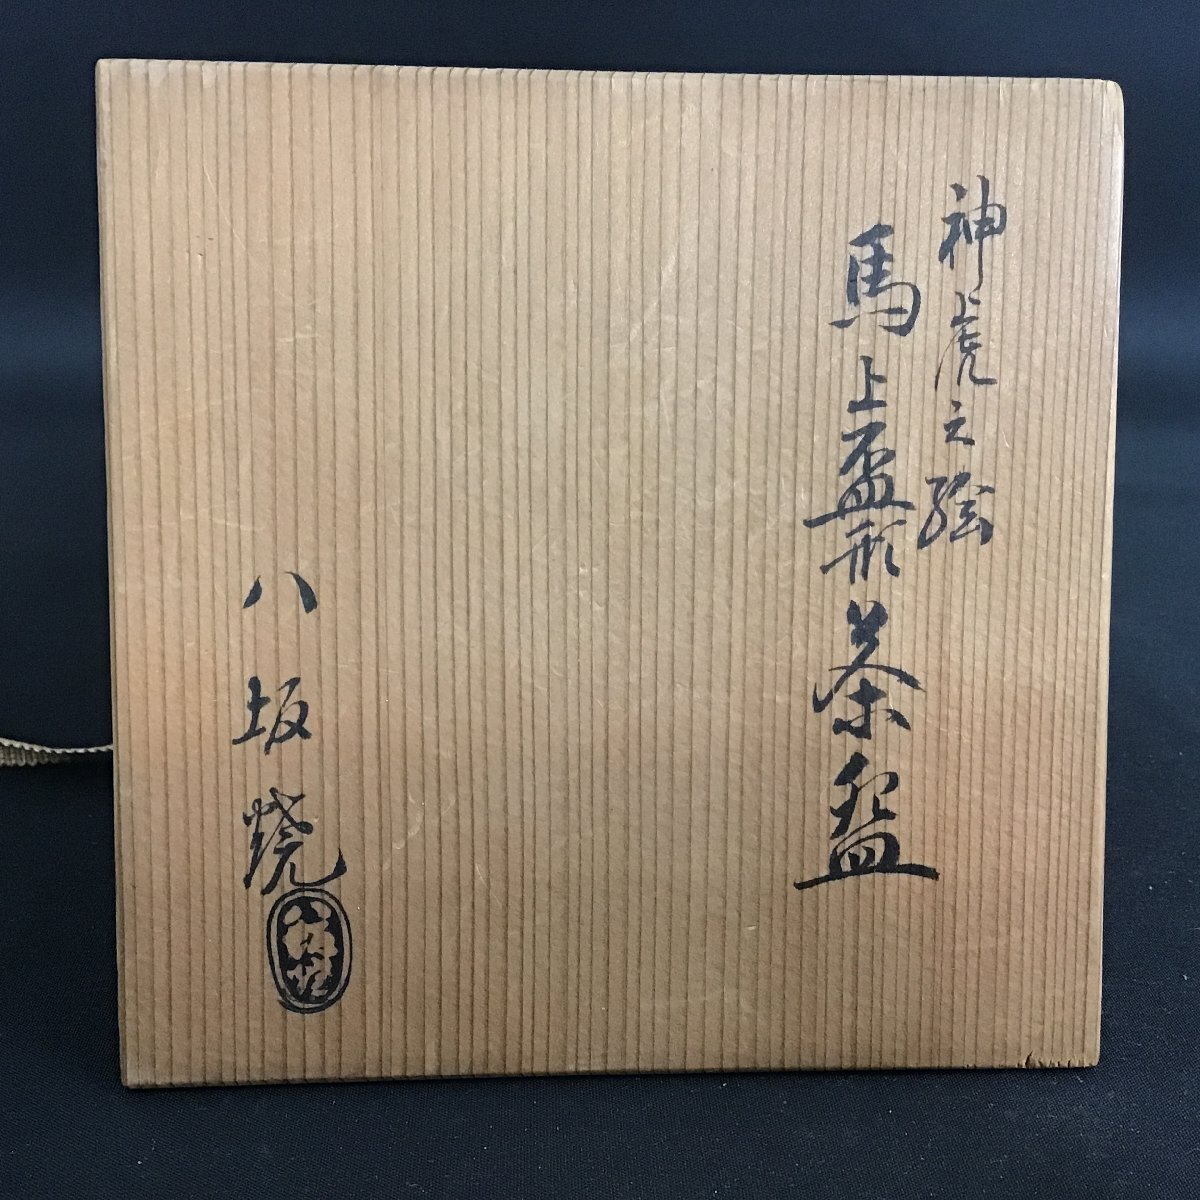 神虎之絵
馬上盃形茶盌
八坂焼